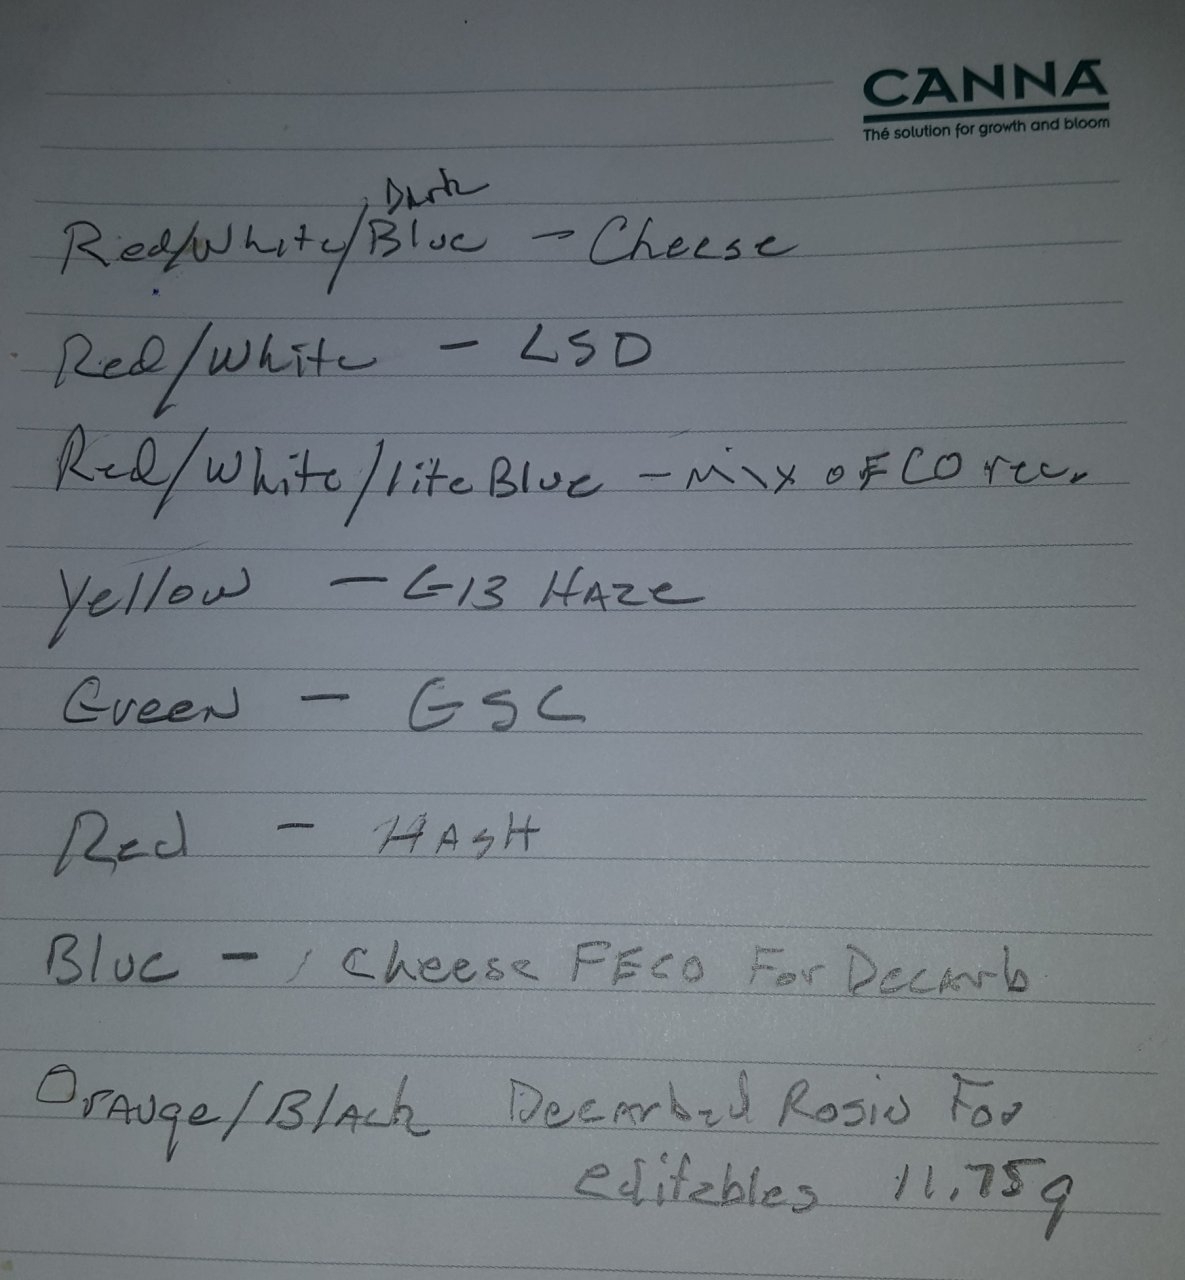 CANNA
The solution for growth and bloom
Dark
Red/White/Blue - Cheese
Red/White - LSD
Red/White/lite Blue - Mix of CO rec.
Yellow - G13 HAZE
Green - GSC
Red - HASH
Blue - Cheese FECO For Decarb
Orange/Black Decarbed Rosin For
editables 11.75g